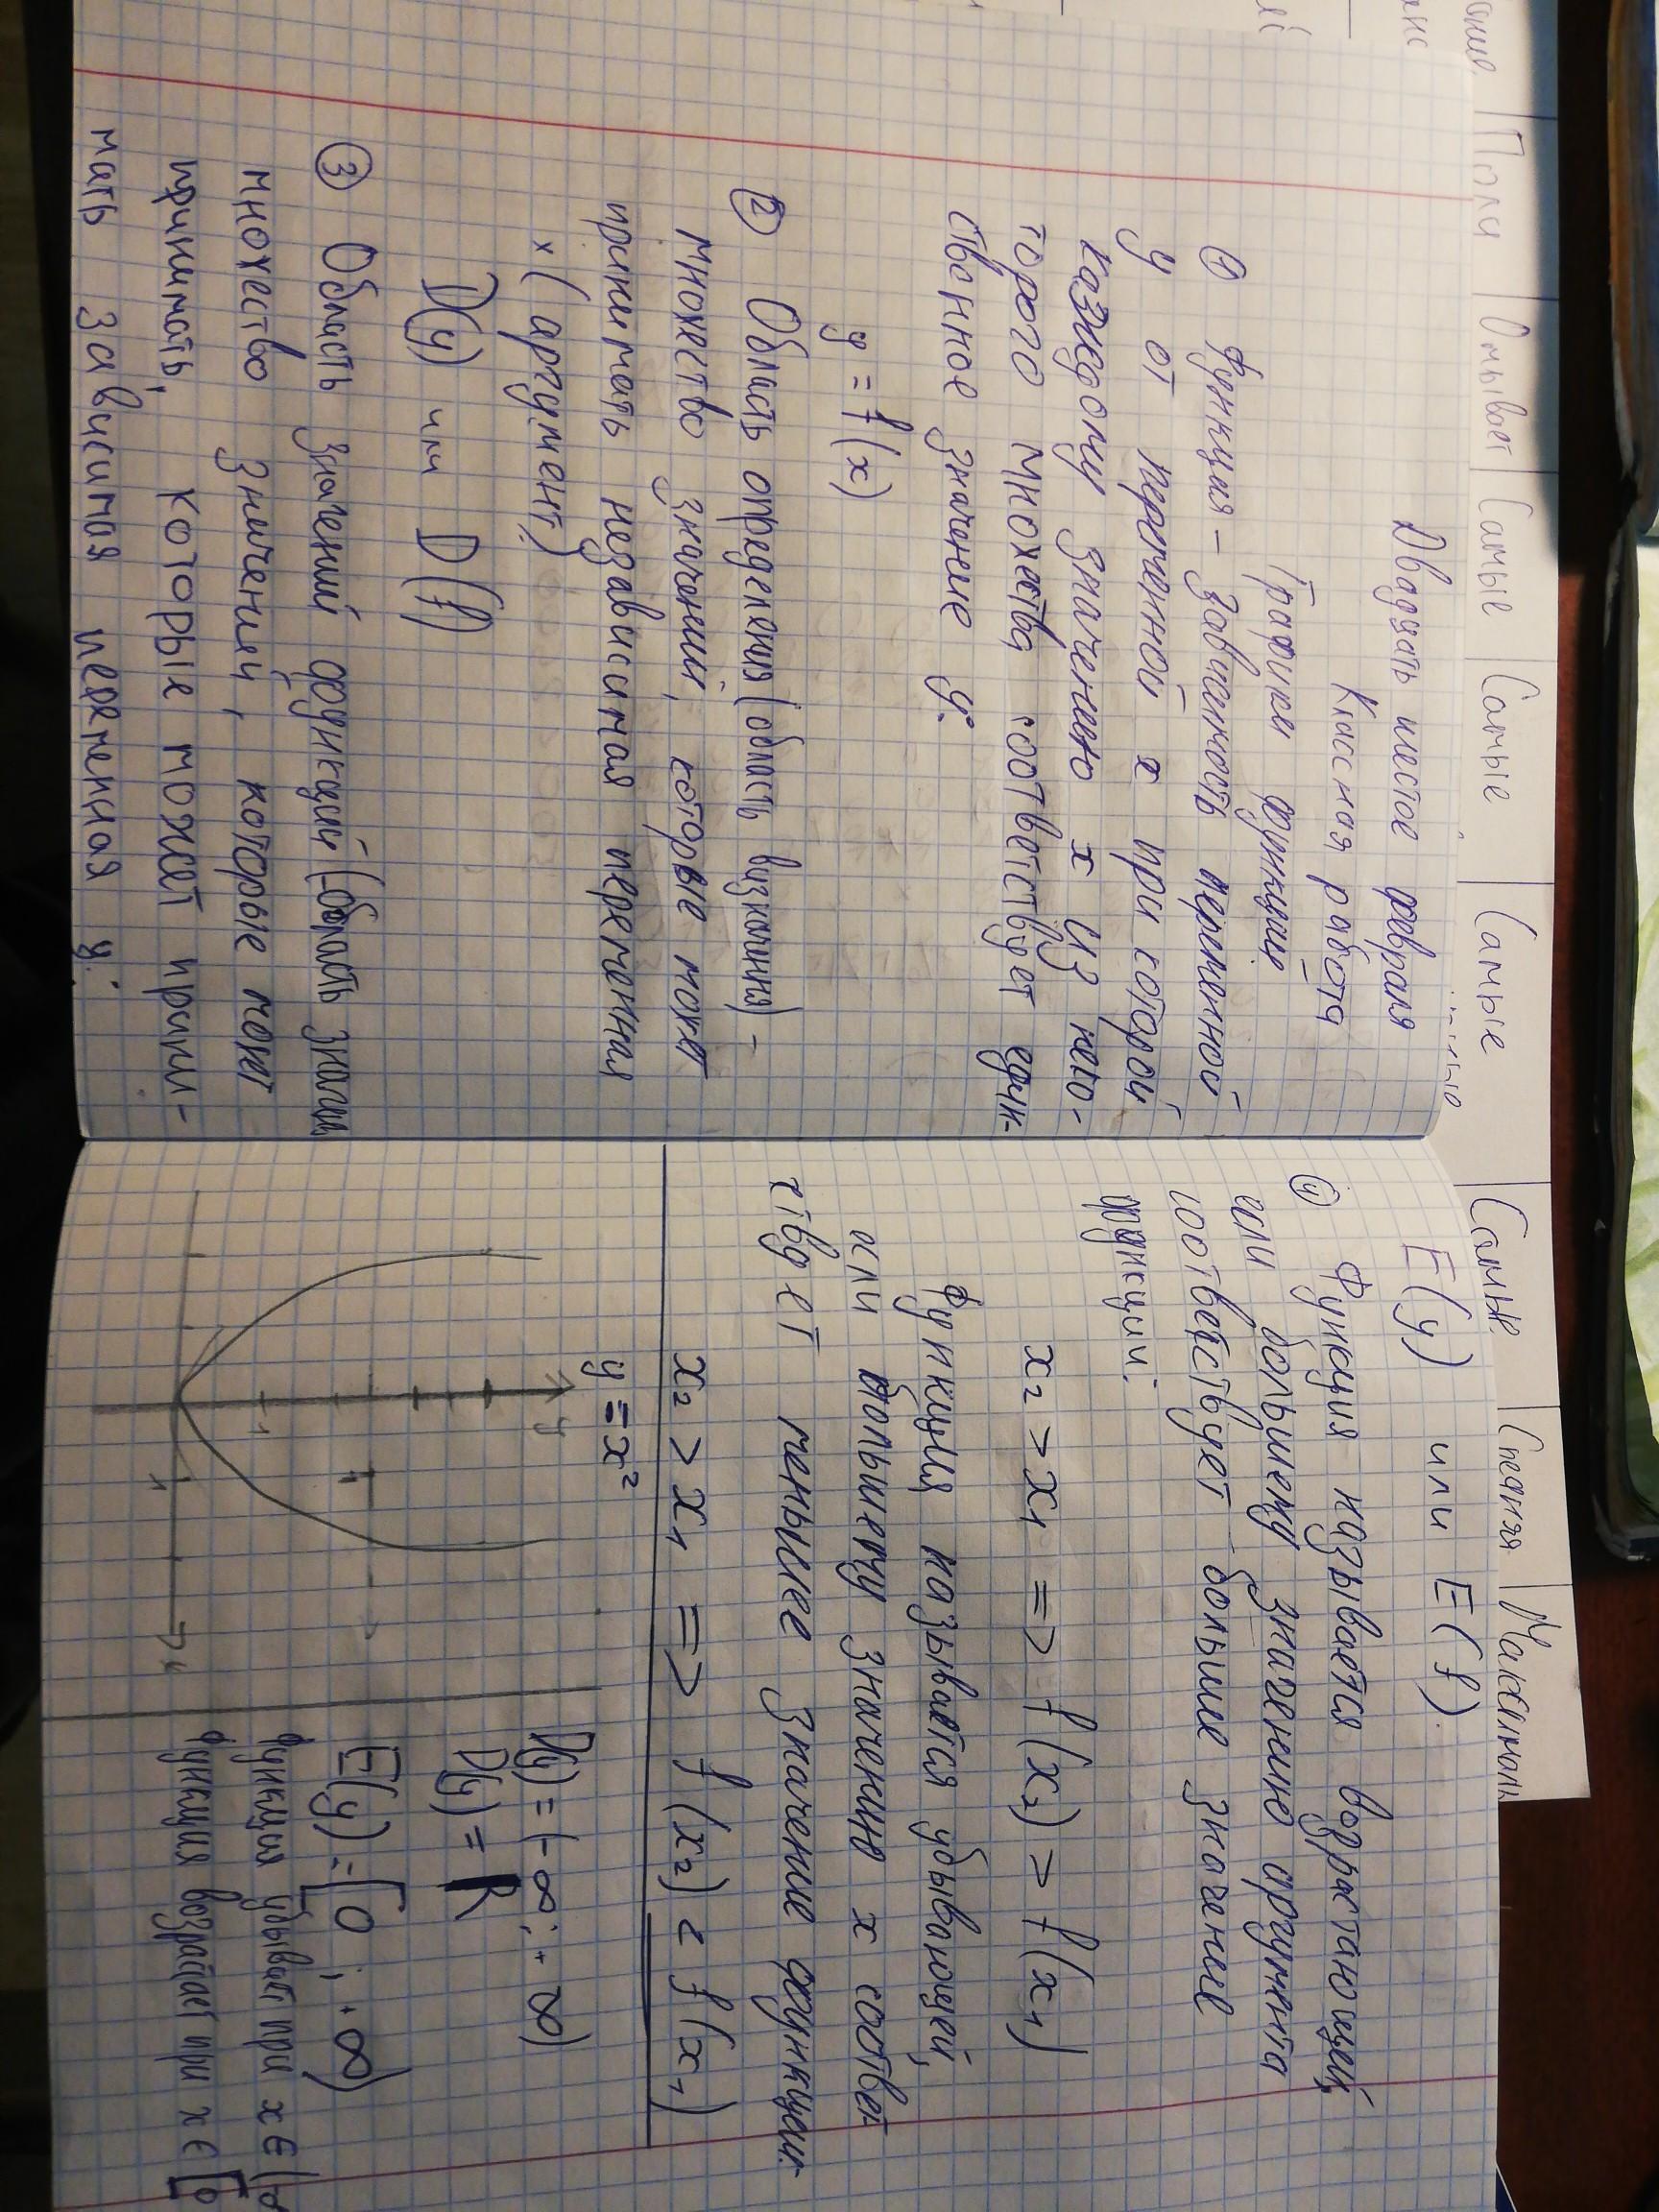 Двадцать шестое февраля
Классная работа
График функции
① Функция - зависимость переменной
y от переменной x при которой
каждому значению x из неко-
торого множества соответствует един-
ственное значение y.
y = f(x)
② Область определения (область
множество значений, которые может
принимать независимая переменная
x (аргумент.)
D(y) или D(f)
③ Область значений функций (область
множество значений, которые может
принимать, которые может прини-
мать зависимая переменная y.
E(y) или E(f).
④ Функция называется возрастающей,
если большему значению аргумента
соответствует большее значение
функций.
x₂ > x₁ => f(x₂) > f(x₁)
Функция называется убывающей,
если большему значению x соответ-
ствует меньшее значение функции.
x₂ > x₁ => f(x₂) < f(x₁)
y = x²
y
1
1
x
D(y) = (-∞; +∞)
D(y) = R
E(y) = [0; +∞)
Функция убывает при x ∈ (
Функция возрастает при x ∈ [0
Поли
Омывает
Самые
Самые
Самые
Самые